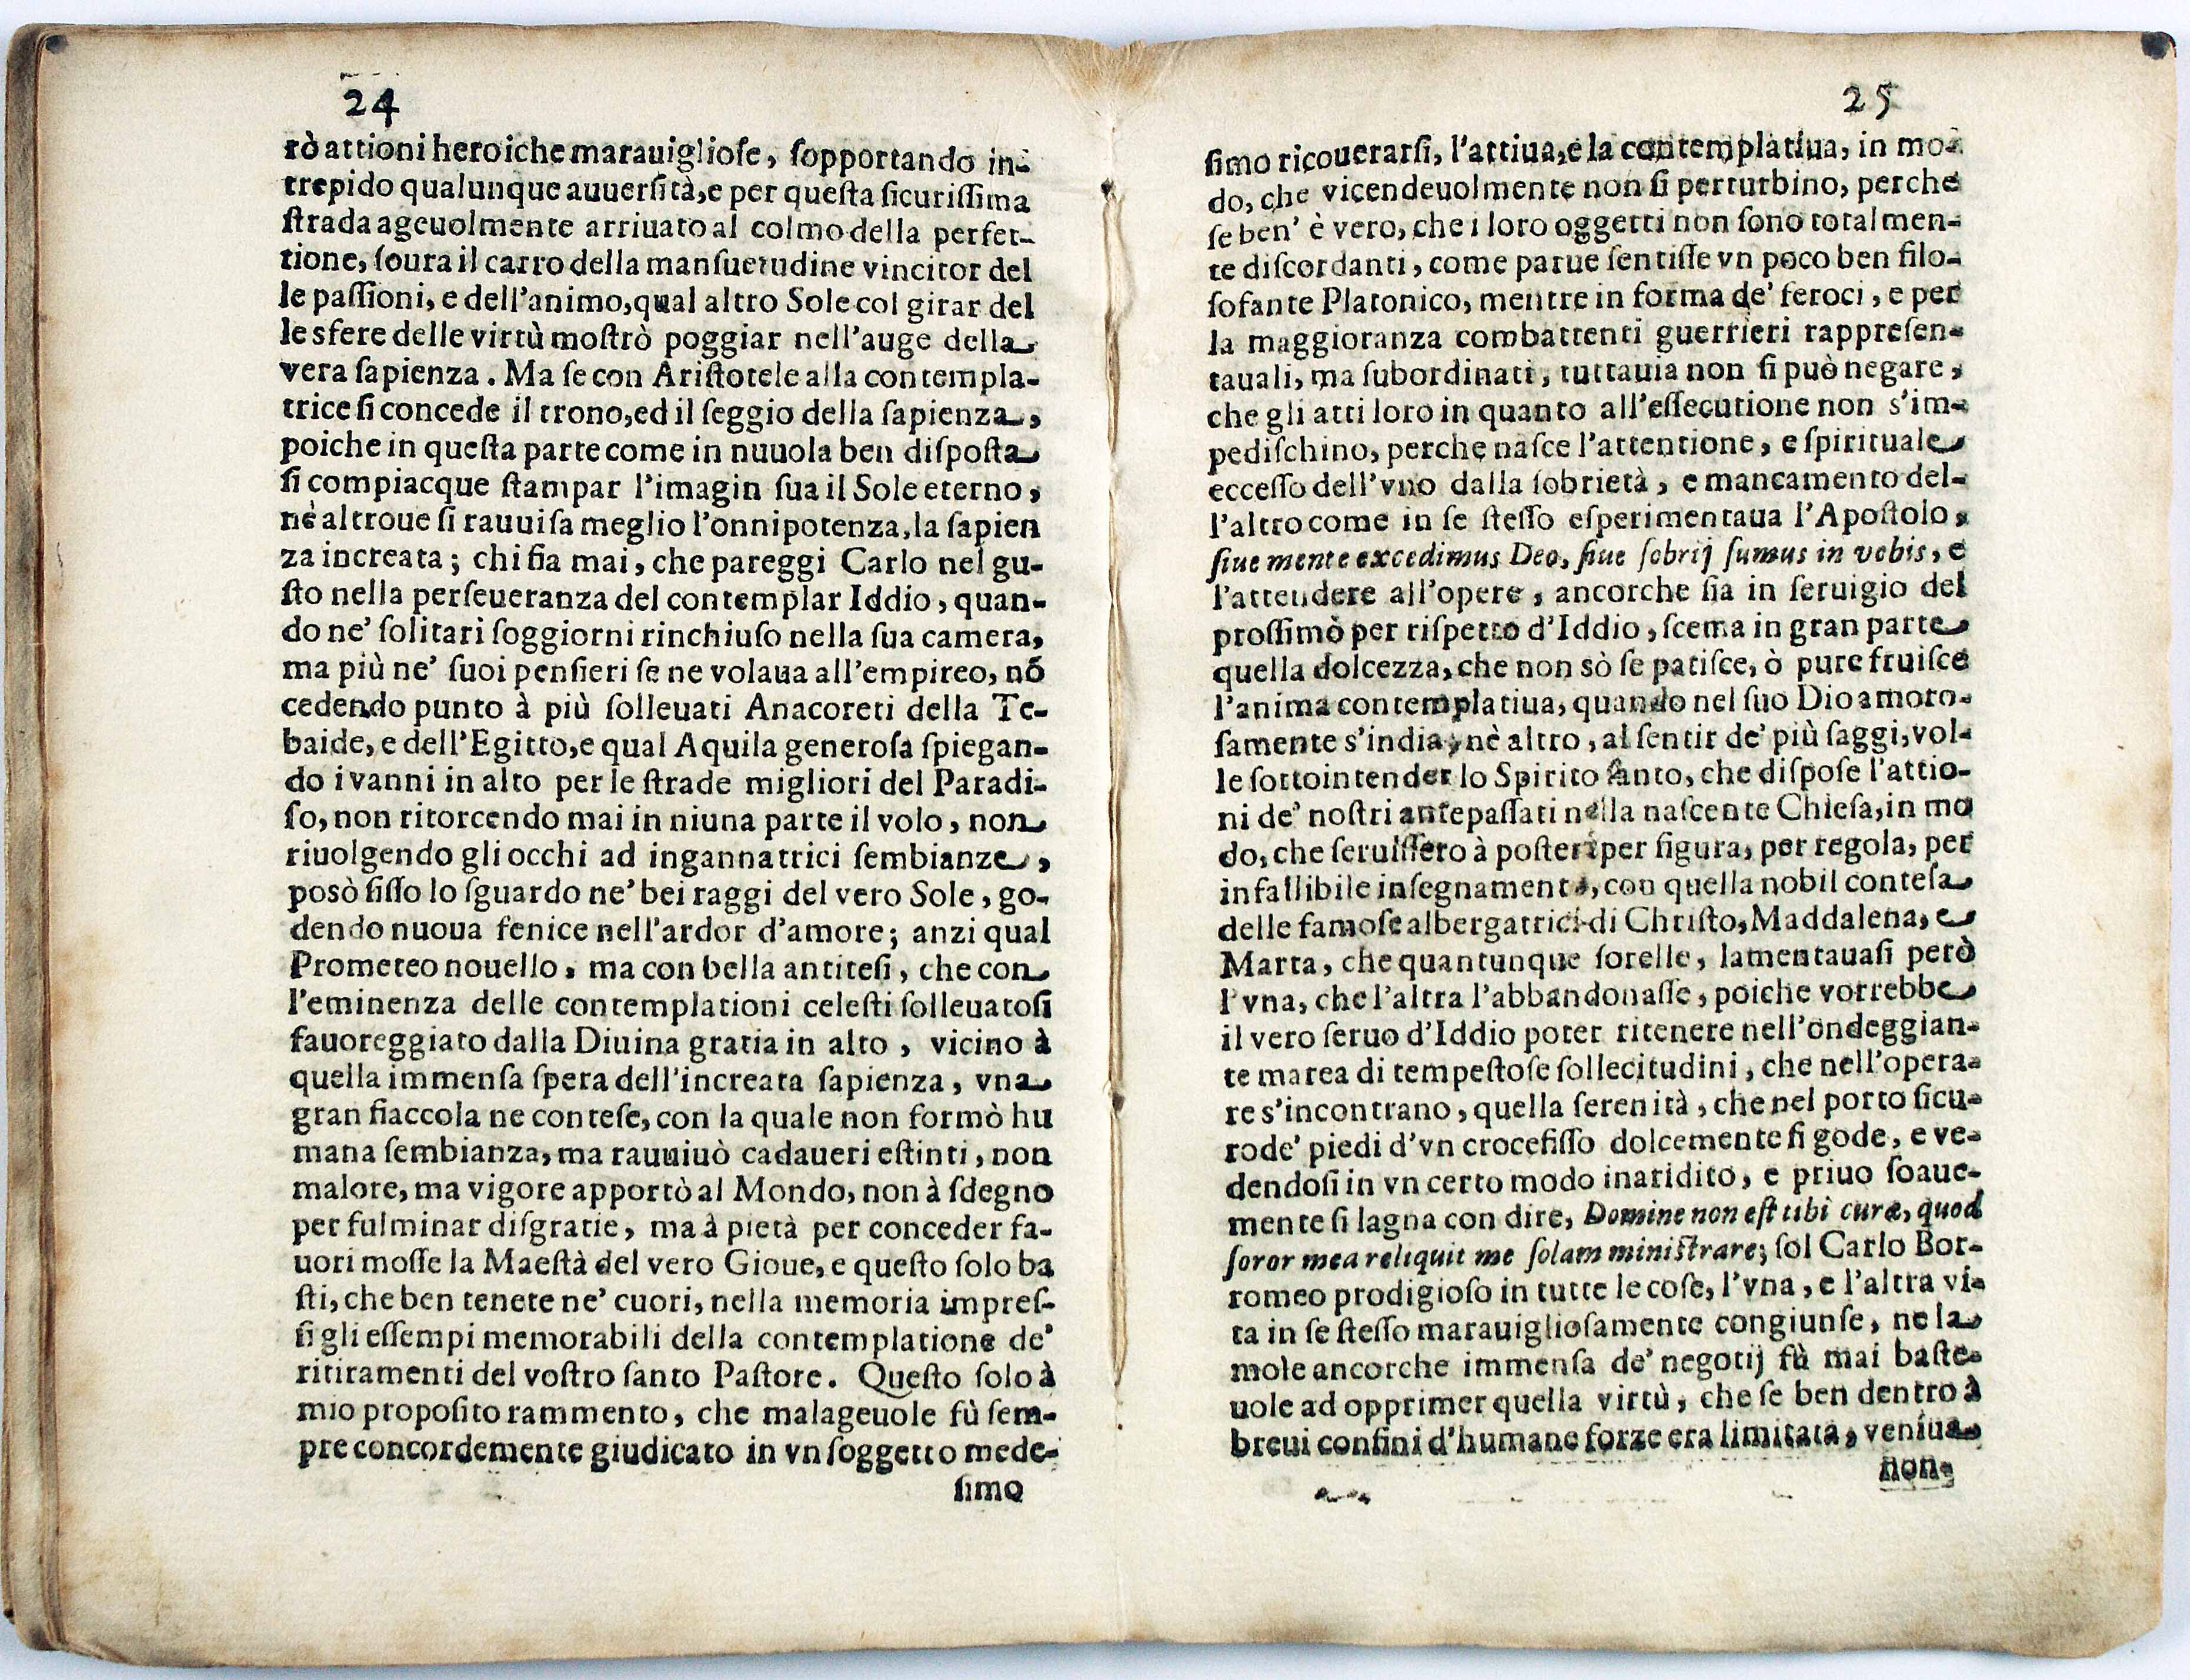 24
rò attioni heroiche marauigliose, sopportando in-
trepido qualunque auuersità, e per questa sicurissima
strada ageuolmente arriuato al colmo della perfet-
tione, soura il carro della mansuetudine vincitor del
le passioni, e dell'animo, qual altro Sole col girar del
le sfere delle virtù mostrò poggiar nell'auge della
vera sapienza. Ma se con Aristotele alla contempla-
trice si concede il trono, ed il seggio della sapienza,
poiche in questa parte come in nuuola ben disposta
si compiacque stampar l'imagin sua il Sole eterno,
nè altroue si rauuisa meglio l'onnipotenza, la sapien
za increata; chi fia mai, che pareggi Carlo nel gu-
sto nella perseueranza del contemplar Iddio, quan-
do ne' solitari soggiorni rinchiuso nella sua camera,
ma più ne' suoi pensieri se ne volaua all'empireo, nõ
cedendo punto à più solleuati Anacoreti della Te-
baide, e dell'Egitto, e qual Aquila generosa spiegan-
do i vanni in alto per le strade migliori del Paradi-
so, non ritorcendo mai in niuna parte il volo, non
riuolgendo gli occhi ad ingannatrici sembianze,
posò fisso lo sguardo ne' bei raggi del vero Sole, go-
dendo nuoua fenice nell'ardor d'amore; anzi qual
Prometeo nouello, ma con bella antitesi, che con
l'eminenza delle contemplationi celesti solleuatosi
fauoreggiato dalla Diuina gratia in alto, vicino à
quella immensa spera dell'increata sapienza, vna
gran fiaccola ne contese, con la quale non formò hu
mana sembianza, ma rauuiuò cadaueri estinti, non
malore, ma vigore apportò al Mondo, non à sdegno
per fulminar disgratie, ma à pietà per conceder fa-
uori mosse la Maestà del vero Gioue, e questo solo ba
sti, che ben tenete ne' cuori, nella memoria impres-
si gli essempi memorabili della contemplatione de'
ritiramenti del vostro santo Pastore. Questo solo à
mio proposito rammento, che malageuole fù sem-
pre concordemente giudicato in vn soggetto mede-
simo
25
simo ricouerarsi, l'attiua, e la contemplatiua, in mo-
do, che vicendeuolmente non si perturbino, perche
se ben' è vero, che i loro oggetti non sono totalmen-
te discordanti, come parue sentisse vn poco ben filo-
sofante Platonico, mentre in forma de' feroci, e per
la maggioranza combattenti guerrieri rappresen-
tauali, ma subordinati, tuttauia non si può negare,
che gli atti loro in quanto all'essecutione non s'im-
pedischino, perche nasce l'attentione, e spirituale
eccesso dell'vno dalla sobrietà, e mancamento del-
l'altro come in se stesso esperimentaua l'Apostolo,
siue mente excedimus Deo, siue sobrij sumus in vobis, e
l'attendere all'opere, ancorche sia in seruigio del
prossimò per rispetto d'Iddio, scema in gran parte
quella dolcezza, che non sò se patisce, ò pure fruisce
l'anima contemplatiua, quando nel suo Dio amoro-
samente s'india, nè altro, al sentir de' più saggi, vol-
le sottointender lo Spirito santo, che dispose l'attio-
ni de' nostri antepassati nella nascente Chiesa, in mo
do, che seruissero à posteri per figura, per regola, per
infallibile insegnamento, con quella nobil contesa
delle famose albergatrici di Christo, Maddalena, e
Marta, che quantunque sorelle, lamentauasi però
l'vna, che l'altra l'abbandonasse, poiche vorrebbe
il vero seruo d'Iddio poter ritenere nell'ondeggian-
te marea di tempestose sollecitudini, che nell'opera-
re s'incontrano, quella serenità, che nel porto sicu-
ro de' piedi d'vn crocefisso dolcemente si gode, e ve-
dendosi in vn certo modo inaridito, e priuo soaue-
mente si lagna con dire, Domine non est tibi curæ, quod
soror mea reliquit me solam ministrare; sol Carlo Bor-
romeo prodigioso in tutte le cose, l'vna, e l'altra vi-
ta in se stesso marauigliosamente congiunse, ne la
mole ancorche immensa de' negotij fù mai baste-
uole ad opprimer quella virtù, che se ben dentro à
breui confini d'humane forze era limitata, veniua
non